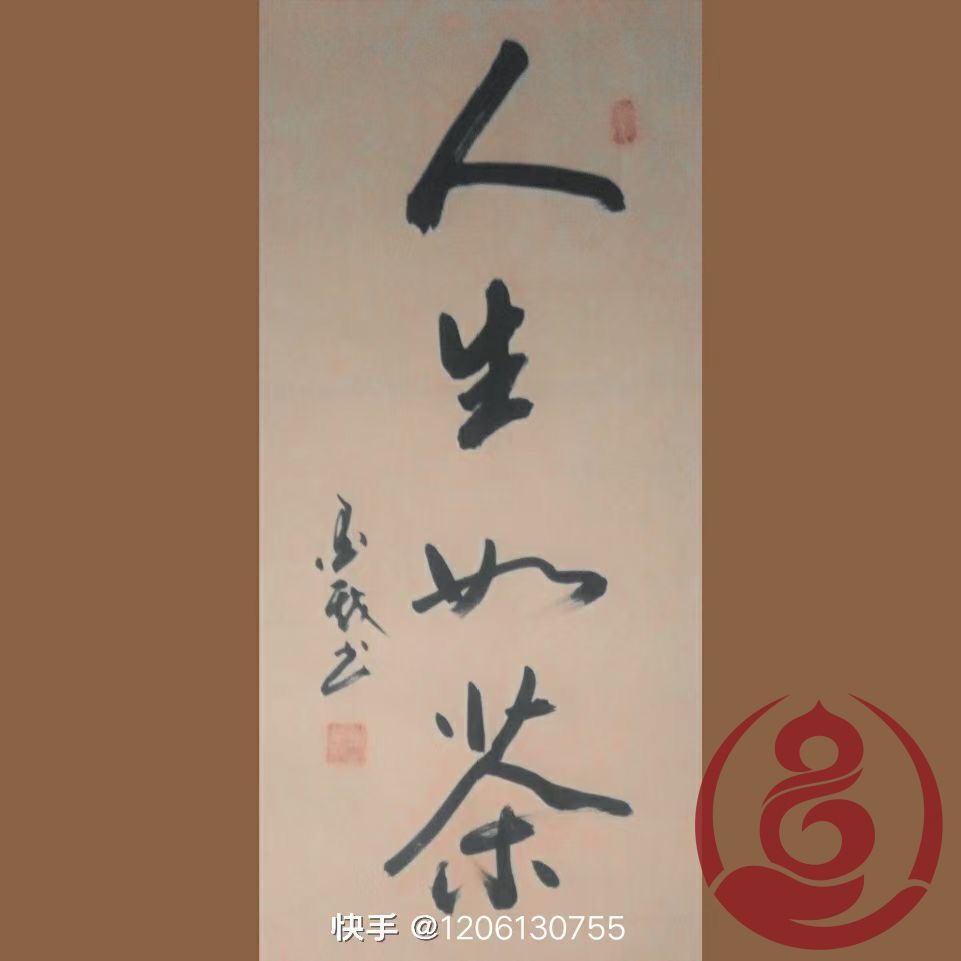 人生如茶
快手 @1206130755